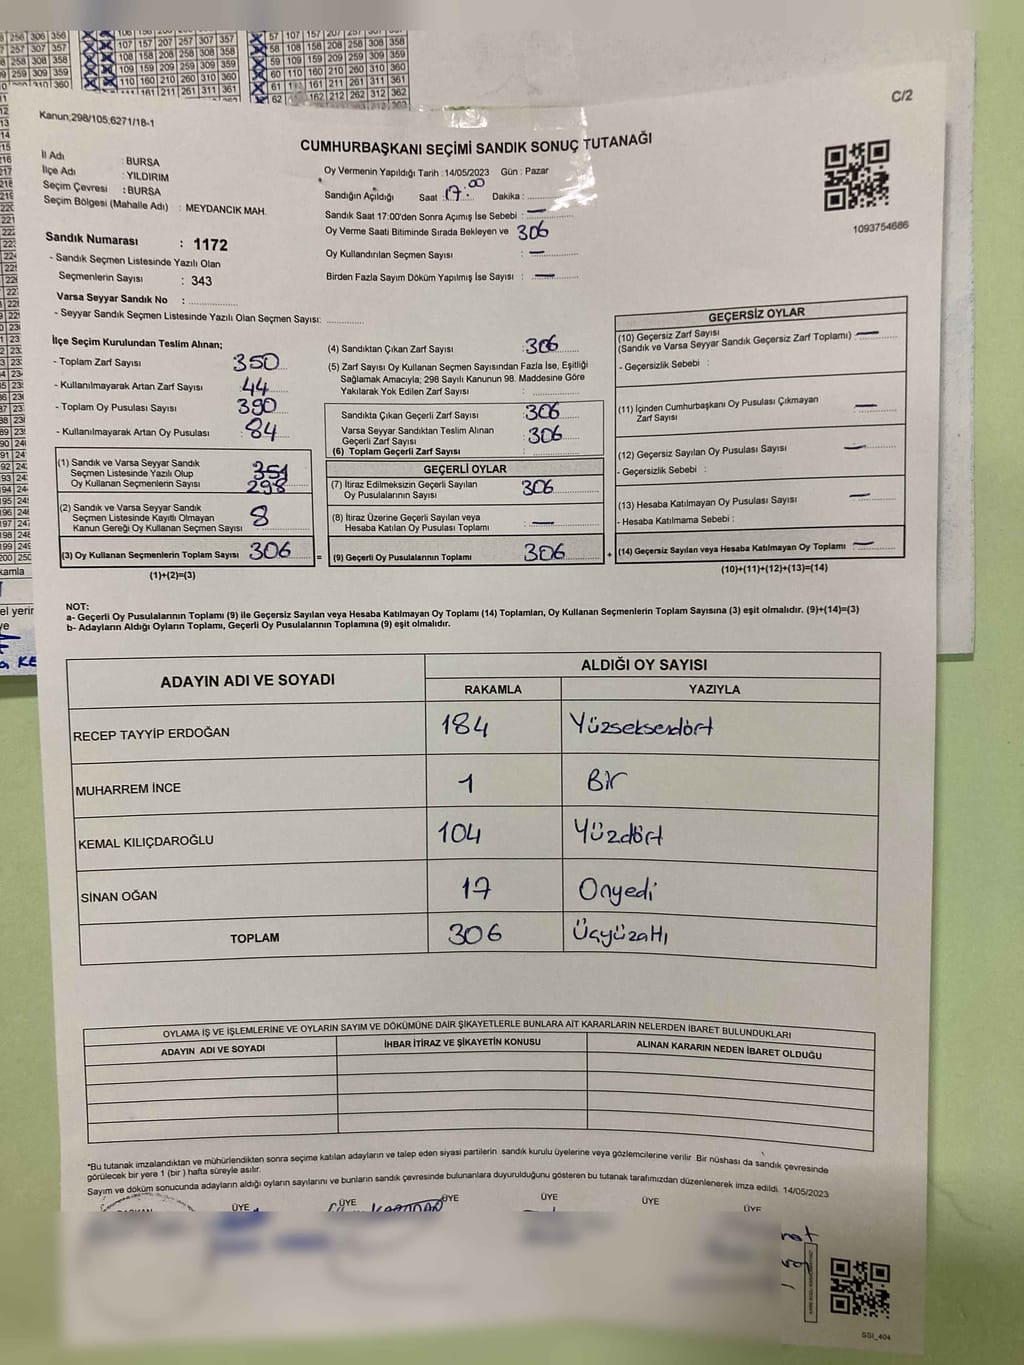 C/2
Kanun;298/105;6271/18-1
CUMHURBAŞKANI SEÇİMİ SANDIK SONUÇ TUTANAĞI
İl Adı : BURSA
İlçe Adı : YILDIRIM
Seçim Çevresi : BURSA
Seçim Bölgesi (Mahalle Adı) : MEYDANCIK MAH.
Sandık Numarası : 1172
- Sandık Seçmen Listesinde Yazılı Olan
Seçmenlerin Sayısı : 343
Varsa Seyyar Sandık No :
- Seyyar Sandık Seçmen Listesinde Yazılı Olan Seçmen Sayısı:
Oy Vermenin Yapıldığı Tarih : 14/05/2023 Gün : Pazar
Sandığın Açıldığı Saat : 17.00 Dakika :
Sandık Saat 17:00'den Sonra Açımış İse Sebebi : —
Oy Verme Saati Bitiminde Sırada Bekleyen ve 306
Oy Kullandırılan Seçmen Sayısı : —
Birden Fazla Sayım Döküm Yapılmış İse Sayısı : —
1093754686
İlçe Seçim Kurulundan Teslim Alınan;
- Toplam Zarf Sayısı 350
- Kullanılmayarak Artan Zarf Sayısı 44
- Toplam Oy Pusulası Sayısı 390
- Kullanılmayarak Artan Oy Pusulası 84
(1) Sandık ve Varsa Seyyar Sandık
Seçmen Listesinde Yazılı Olup
Oy Kullanan Seçmenlerin Sayısı 298
(2) Sandık ve Varsa Seyyar Sandık
Seçmen Listesinde Kayıtlı Olmayan
Kanun Gereği Oy Kullanan Seçmen Sayısı 8
(3) Oy Kullanan Seçmenlerin Toplam Sayısı 306 =
(1)+(2)=(3)
(4) Sandıktan Çıkan Zarf Sayısı : 306
(5) Zarf Sayısı Oy Kullanan Seçmen Sayısından Fazla İse, Eşitliği
Sağlamak Amacıyla; 298 Sayılı Kanunun 98. Maddesine Göre
Yakılarak Yok Edilen Zarf Sayısı :
Sandıkta Çıkan Geçerli Zarf Sayısı : 306
Varsa Seyyar Sandıktan Teslim Alınan
Geçerli Zarf Sayısı : 306
(6) Toplam Geçerli Zarf Sayısı :
GEÇERLİ OYLAR
(7) İtiraz Edilmeksizin Geçerli Sayılan
Oy Pusulalarının Sayısı : 306
(8) İtiraz Üzerine Geçerli Sayılan veya
Hesaba Katılan Oy Pusulası Toplamı : —
(9) Geçerli Oy Pusulalarının Toplamı : 306 +
GEÇERSİZ OYLAR
(10) Geçersiz Zarf Sayısı
(Sandık ve Varsa Seyyar Sandık Geçersiz Zarf Toplamı) : —
- Geçersizlik Sebebi :
(11) İçinden Cumhurbaşkanı Oy Pusulası Çıkmayan
Zarf Sayısı : —
(12) Geçersiz Sayılan Oy Pusulası Sayısı : —
- Geçersizlik Sebebi :
(13) Hesaba Katılmayan Oy Pusulası Sayısı : —
- Hesaba Katılmama Sebebi :
(14) Geçersiz Sayılan veya Hesaba Katılmayan Oy Toplamı : —
(10)+(11)+(12)+(13)=(14)
NOT:
a- Geçerli Oy Pusulalarının Toplamı (9) ile Geçersiz Sayılan veya Hesaba Katılmayan Oy Toplamı (14) Toplamları, Oy Kullanan Seçmenlerin Toplam Sayısına (3) eşit olmalıdır. (9)+(14)=(3)
b- Adayların Aldığı Oyların Toplamı, Geçerli Oy Pusulalarının Toplamına (9) eşit olmalıdır.
ADAYIN ADI VE SOYADI
ALDIĞI OY SAYISI
RAKAMLA YAZIYLA
RECEP TAYYİP ERDOĞAN 184 Yüzseksendört
MUHARREM İNCE 1 Bir
KEMAL KILIÇDAROĞLU 104 Yüzdört
SİNAN OĞAN 17 Onyedi
TOPLAM 306 Üçyüzaltı
OYLAMA İŞ VE İŞLEMLERİNE VE OYLARIN SAYIM VE DÖKÜMÜNE DAİR ŞİKAYETLERLE BUNLARA AİT KARARLARIN NELERDEN İBARET BULUNDUKLARI
ADAYIN ADI VE SOYADI İHBAR İTİRAZ VE ŞİKAYETİN KONUSU ALINAN KARARIN NEDEN İBARET OLDUĞU
*Bu tutanak imzalandıktan ve mühürlendikten sonra seçime katılan adayların ve talep eden siyasi partilerin sandık kurulu üyelerine veya gözlemcilerine verilir. Bir nüshası da sandık çevresinde
görülecek bir yere 1 (bir) hafta süreyle asılır.
Sayım ve döküm sonucunda adayların aldığı oyların sayılarını ve bunların sandık çevresinde bulunanlara duyurulduğunu gösteren bu tutanak tarafımızdan düzenlenerek imza edildi. 14/05/2023
ÜYE ÜYE ÜYE ÜYE ÜYE ÜYE
SSI_404